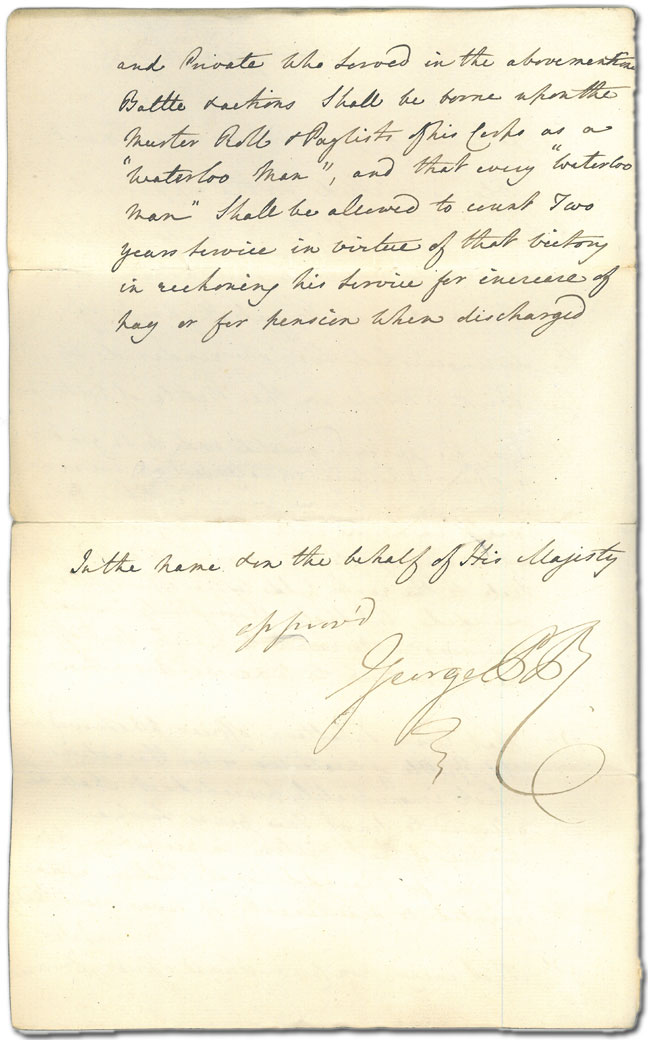 and Private who served in the abovementione
Battle & actions Shall be borne upon the
Muster Roll & Paylists of his Corps as a
"Waterloo Man", and that every "Waterloo
Man" Shall be allowed to count Two
years service in virtue of that victory
in reckoning his service for increase of
pay or for pension when discharged
In the name & on the behalf of His Majesty
approv'd
George P R